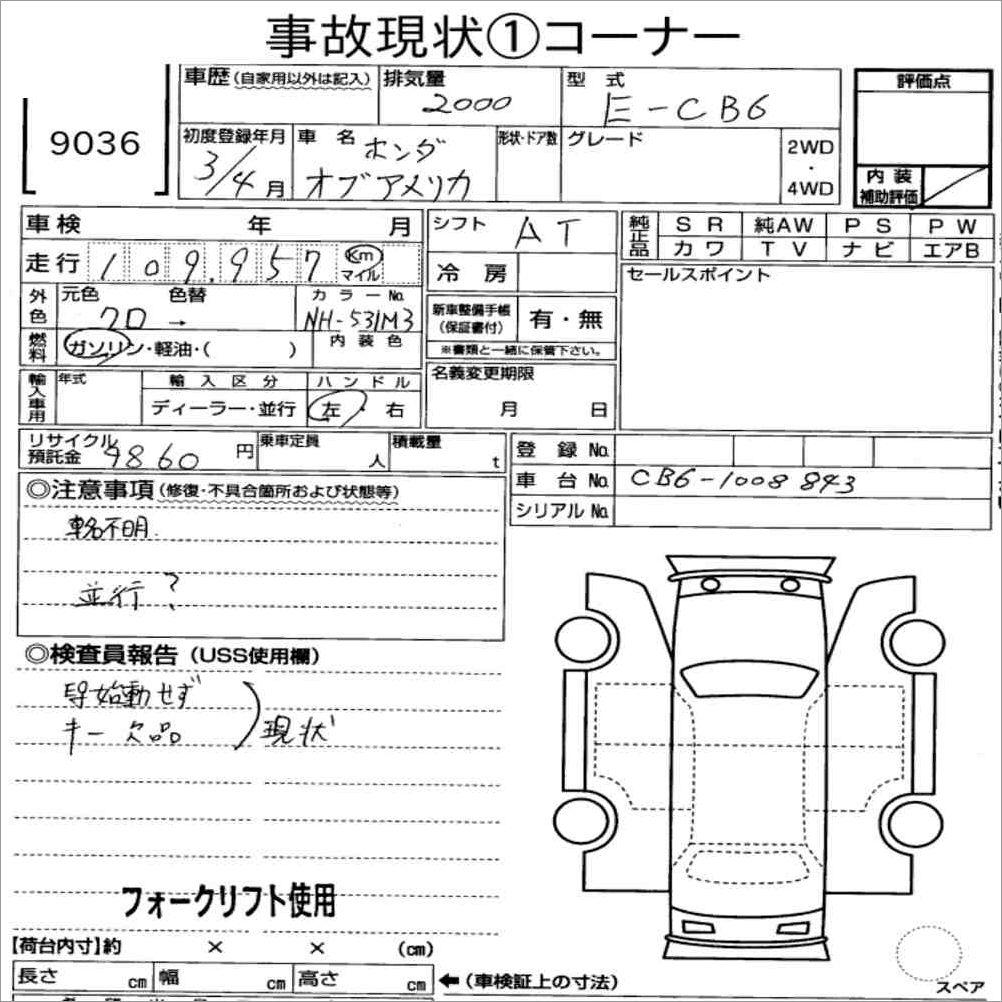 事故現状①コーナー
9036
車歴(自家用以外は記入)
排気量
2000
型式
E-CB6
評価点
初度登録年月
3/4月
車名
ホンダ
オブアメリカ
形状・ドア数
グレード
2WD
・
4WD
内装
補助評価
車検 年 月
シフト
AT
純正品
SR 純AW PS PW
カワ TV ナビ エアB
走行 109,957 Km
マイル
冷房
セールスポイント
外色
元色 色替 カラーNo.
→ NH-531M3
新車整備手帳
(保証書付)
有・無
燃料
ガソリン・軽油・( )
内装色
※書類と一緒に保管下さい。
輸入車用
年式
輸入区分
ハンドル
ディーラー・並行
左・右
名義変更期限
月 日
リサイクル
預託金
9860円
乗車定員
人
積載量
t
登録No.
車台No. CB6-1008843
シリアルNo.
◎注意事項(修復・不具合箇所および状態等)
車名不明
並行?
◎検査員報告(USS使用欄)
始動せず
キー欠品
現状
フォークリフト使用
【荷台内寸】約 × × (cm)
長さ cm 幅 cm 高さ cm ←(車検証上の寸法)
スペア